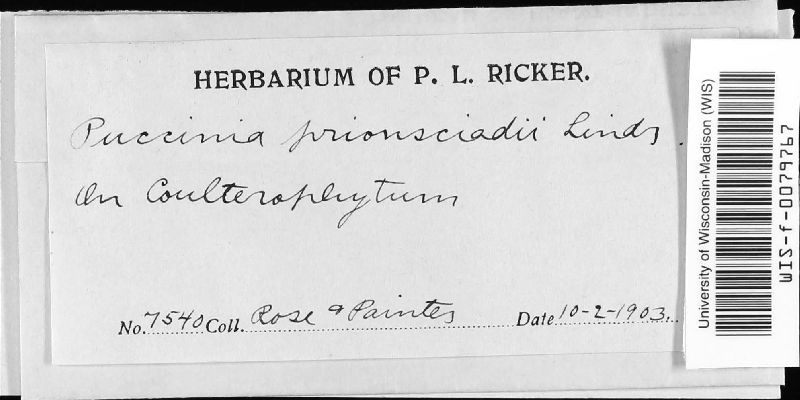 HERBARIUM OF P. L. RICKER.
Puccinia prionsciadii Linds.
On Coulterophytum
No. 7540 Coll. Rose & Painter Date 10-2-1903.
University of Wisconsin-Madison (WIS)
WIS-f-0079767